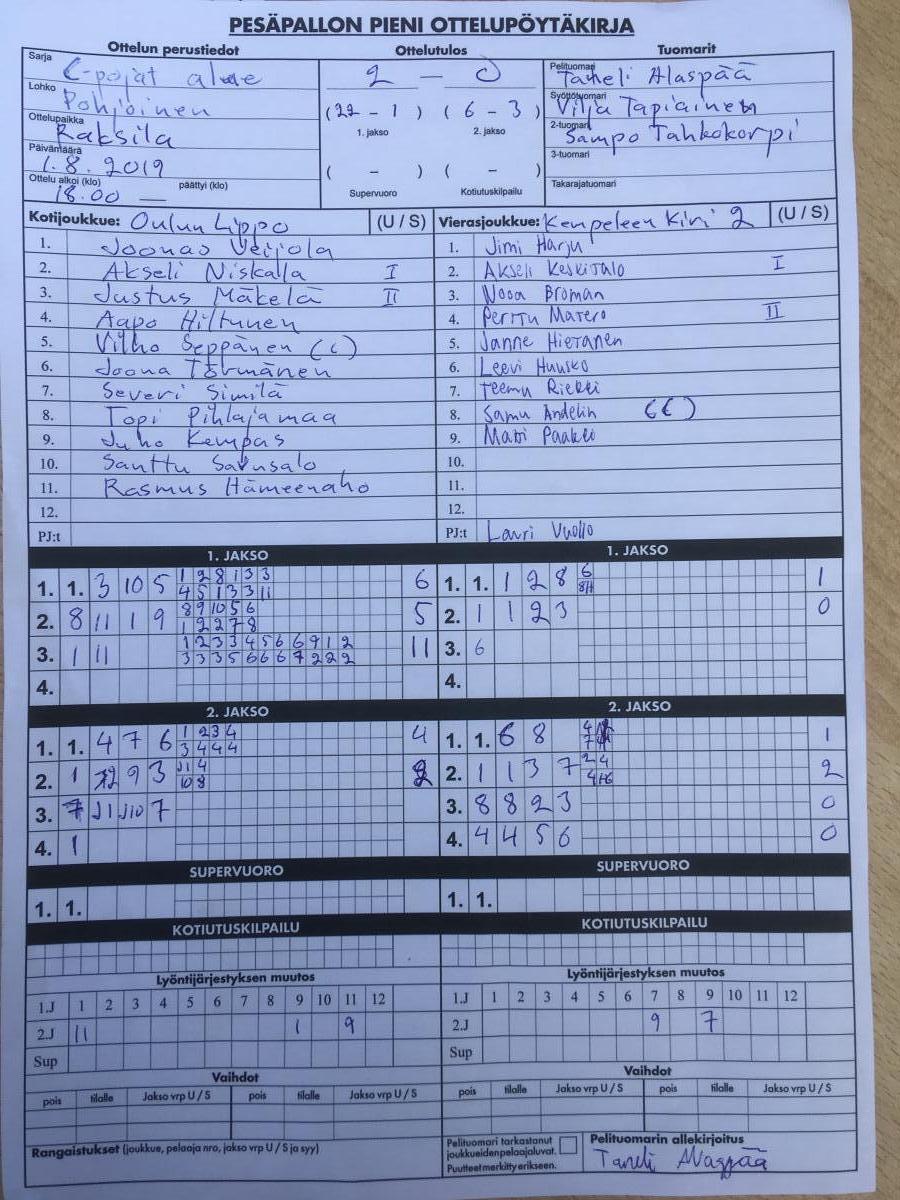 PESÄPALLON PIENI OTTELUPÖYTÄKIRJA
Ottelun perustiedot Ottelutulos Tuomarit
Sarja C-pojat alue
Lohko Pohjoinen
Ottelupaikka Raksila
Päivämäärä 1.8.2019
Ottelu alkoi (klo) 18.00 päättyi (klo) —
2 — 0
(22 - 1) (6 - 3)
1. jakso 2. jakso
( - ) ( - )
Supervuoro Kotiutuskilpailu
Pelituomari Taneli Alaspää
Syöttötuomari Vilja Tapiainen
2-tuomari Sampo Tahkokorpi
3-tuomari
Takarajatuomari
Kotijoukkue: Oulun Lippo (U / S)
1. Joonas Veijola
2. Akseli Niskala I
3. Justus Mäkelä II
4. Aapo Hiltunen
5. Vilho Seppänen (C)
6. Joona Törmänen
7. Severi Similä
8. Topi Pihlajamaa
9. Juho Kempas
10. Santtu Savusalo
11. Rasmus Hämeenaho
12.
PJ:t
Vierasjoukkue: Kempeleen Kiri 2 (U / S)
1. Jimi Harju
2. Akseli Keskitalo I
3. Nooa Broman
4. Perttu Matero II
5. Janne Hieranen
6. Leevi Huusko
7. Teemu Riekki
8. Samu Andelin (C)
9. Matti Paakki
10.
11.
12.
PJ:t Lauri Vuollo
1. JAKSO
1. 1. 3 10 5 1 2 8 1 3 3 6
4 5 1 3 3 11
2. 8 11 1 9 8 9 10 5 6 5
1 2 2 7 8
3. 1 11 1 2 3 3 4 5 6 6 9 1 2 11
3 3 3 5 6 6 6 7 2 2 2
4.
1. JAKSO
1. 1. 1 2 8 6 1
2. 1 1 2 3 0
3. 6
4.
2. JAKSO
1. 1. 4 7 6 1 2 3 4 4
3 4 4 4
2. 1 9 3 11 4 2
10 8
3. 7 11 10 7
4. 1
2. JAKSO
1. 1. 6 8 4 1
2. 1 1 3 7 2 4 2
3. 8 8 2 3 0
4. 4 4 5 6 0
SUPERVUORO
1. 1.
SUPERVUORO
1. 1.
KOTIUTUSKILPAILU
KOTIUTUSKILPAILU
Lyöntijärjestyksen muutos
1.J 1 2 3 4 5 6 7 8 9 10 11 12
2.J 11 1 9
Sup
Lyöntijärjestyksen muutos
1.J 1 2 3 4 5 6 7 8 9 10 11 12
2.J 9 7
Sup
Vaihdot
pois tilalle Jakso vrp U / S pois tilalle Jakso vrp U / S
Vaihdot
pois tilalle Jakso vrp U / S pois tilalle Jakso vrp U / S
Rangaistukset (joukkue, pelaaja nro, jakso vrp U / S ja syy)
Pelituomari tarkastanut
joukkueiden pelaajaluvat.
Puutteet merkitty erikseen.
Pelituomarin allekirjoitus
Taneli Alaspää